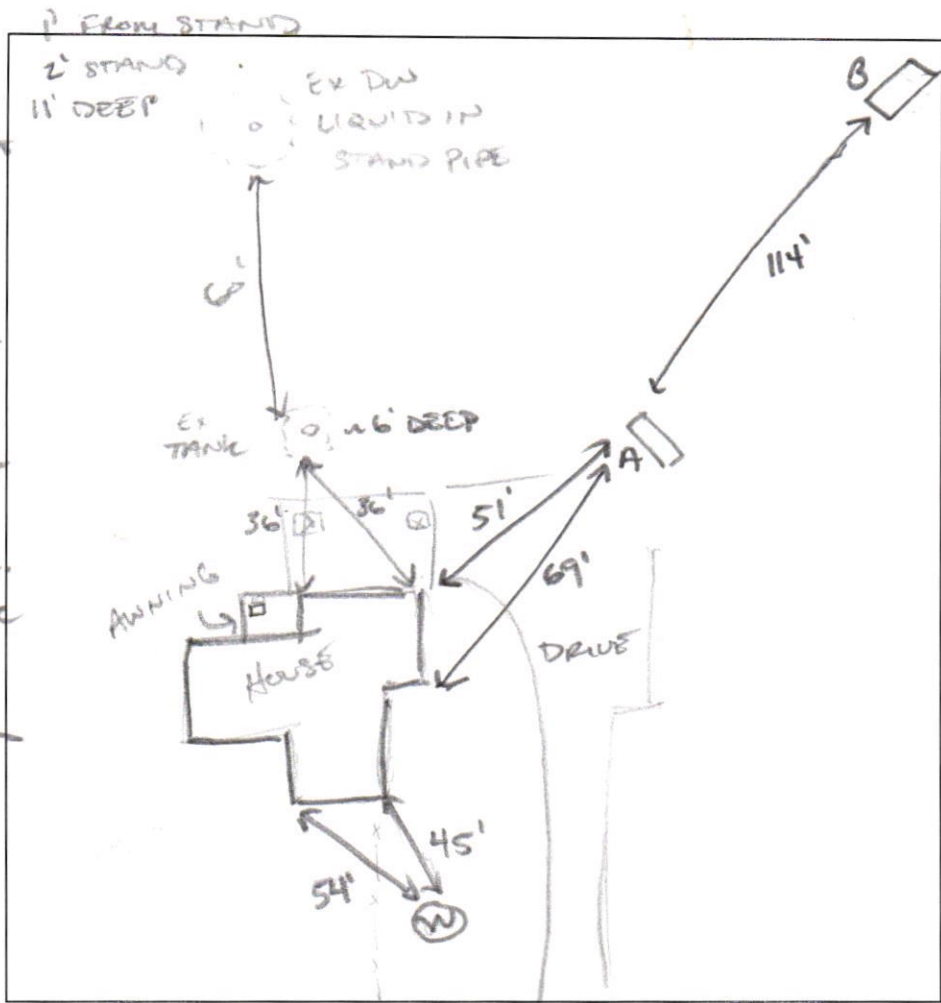 1' FROM STAND
2' STAND
11' DEEP
EX DW
LIQUID IN
STAND PIPE
B
114'
EX
TANK
~6' DEEP
A
36'
36'
51'
69'
AWNING
HOUSE
DRIVE
45'
54'
W